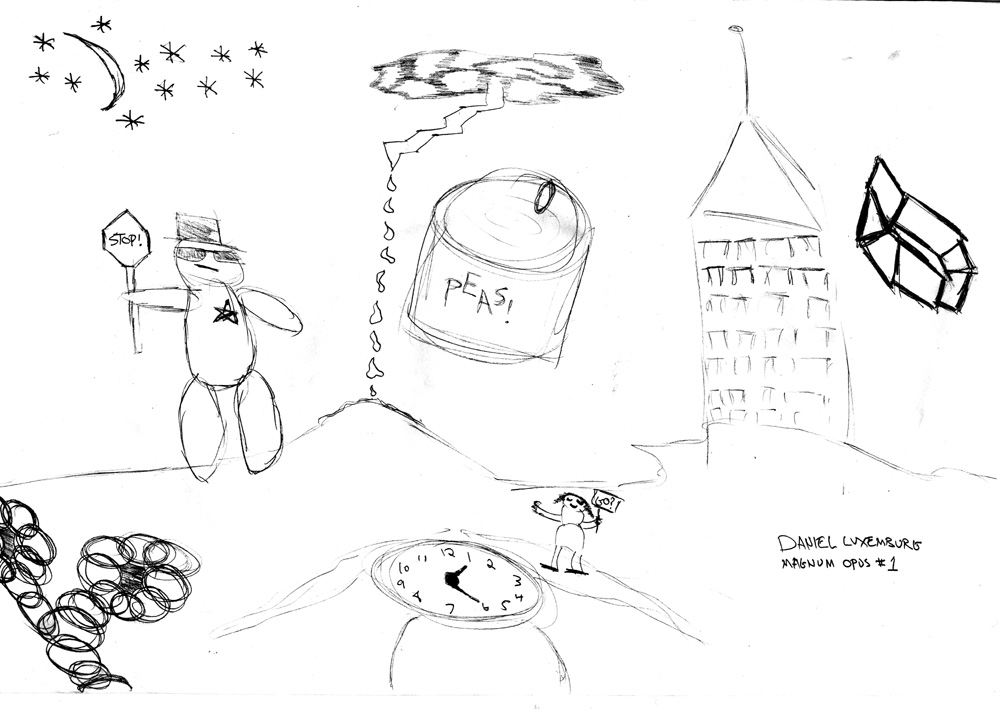 STOP!
PEAS!
GO?!
12
11
1
10
2
9
3
8
4
7
6
5
DANIEL LUXEMBURG
MAGNUM OPUS #1